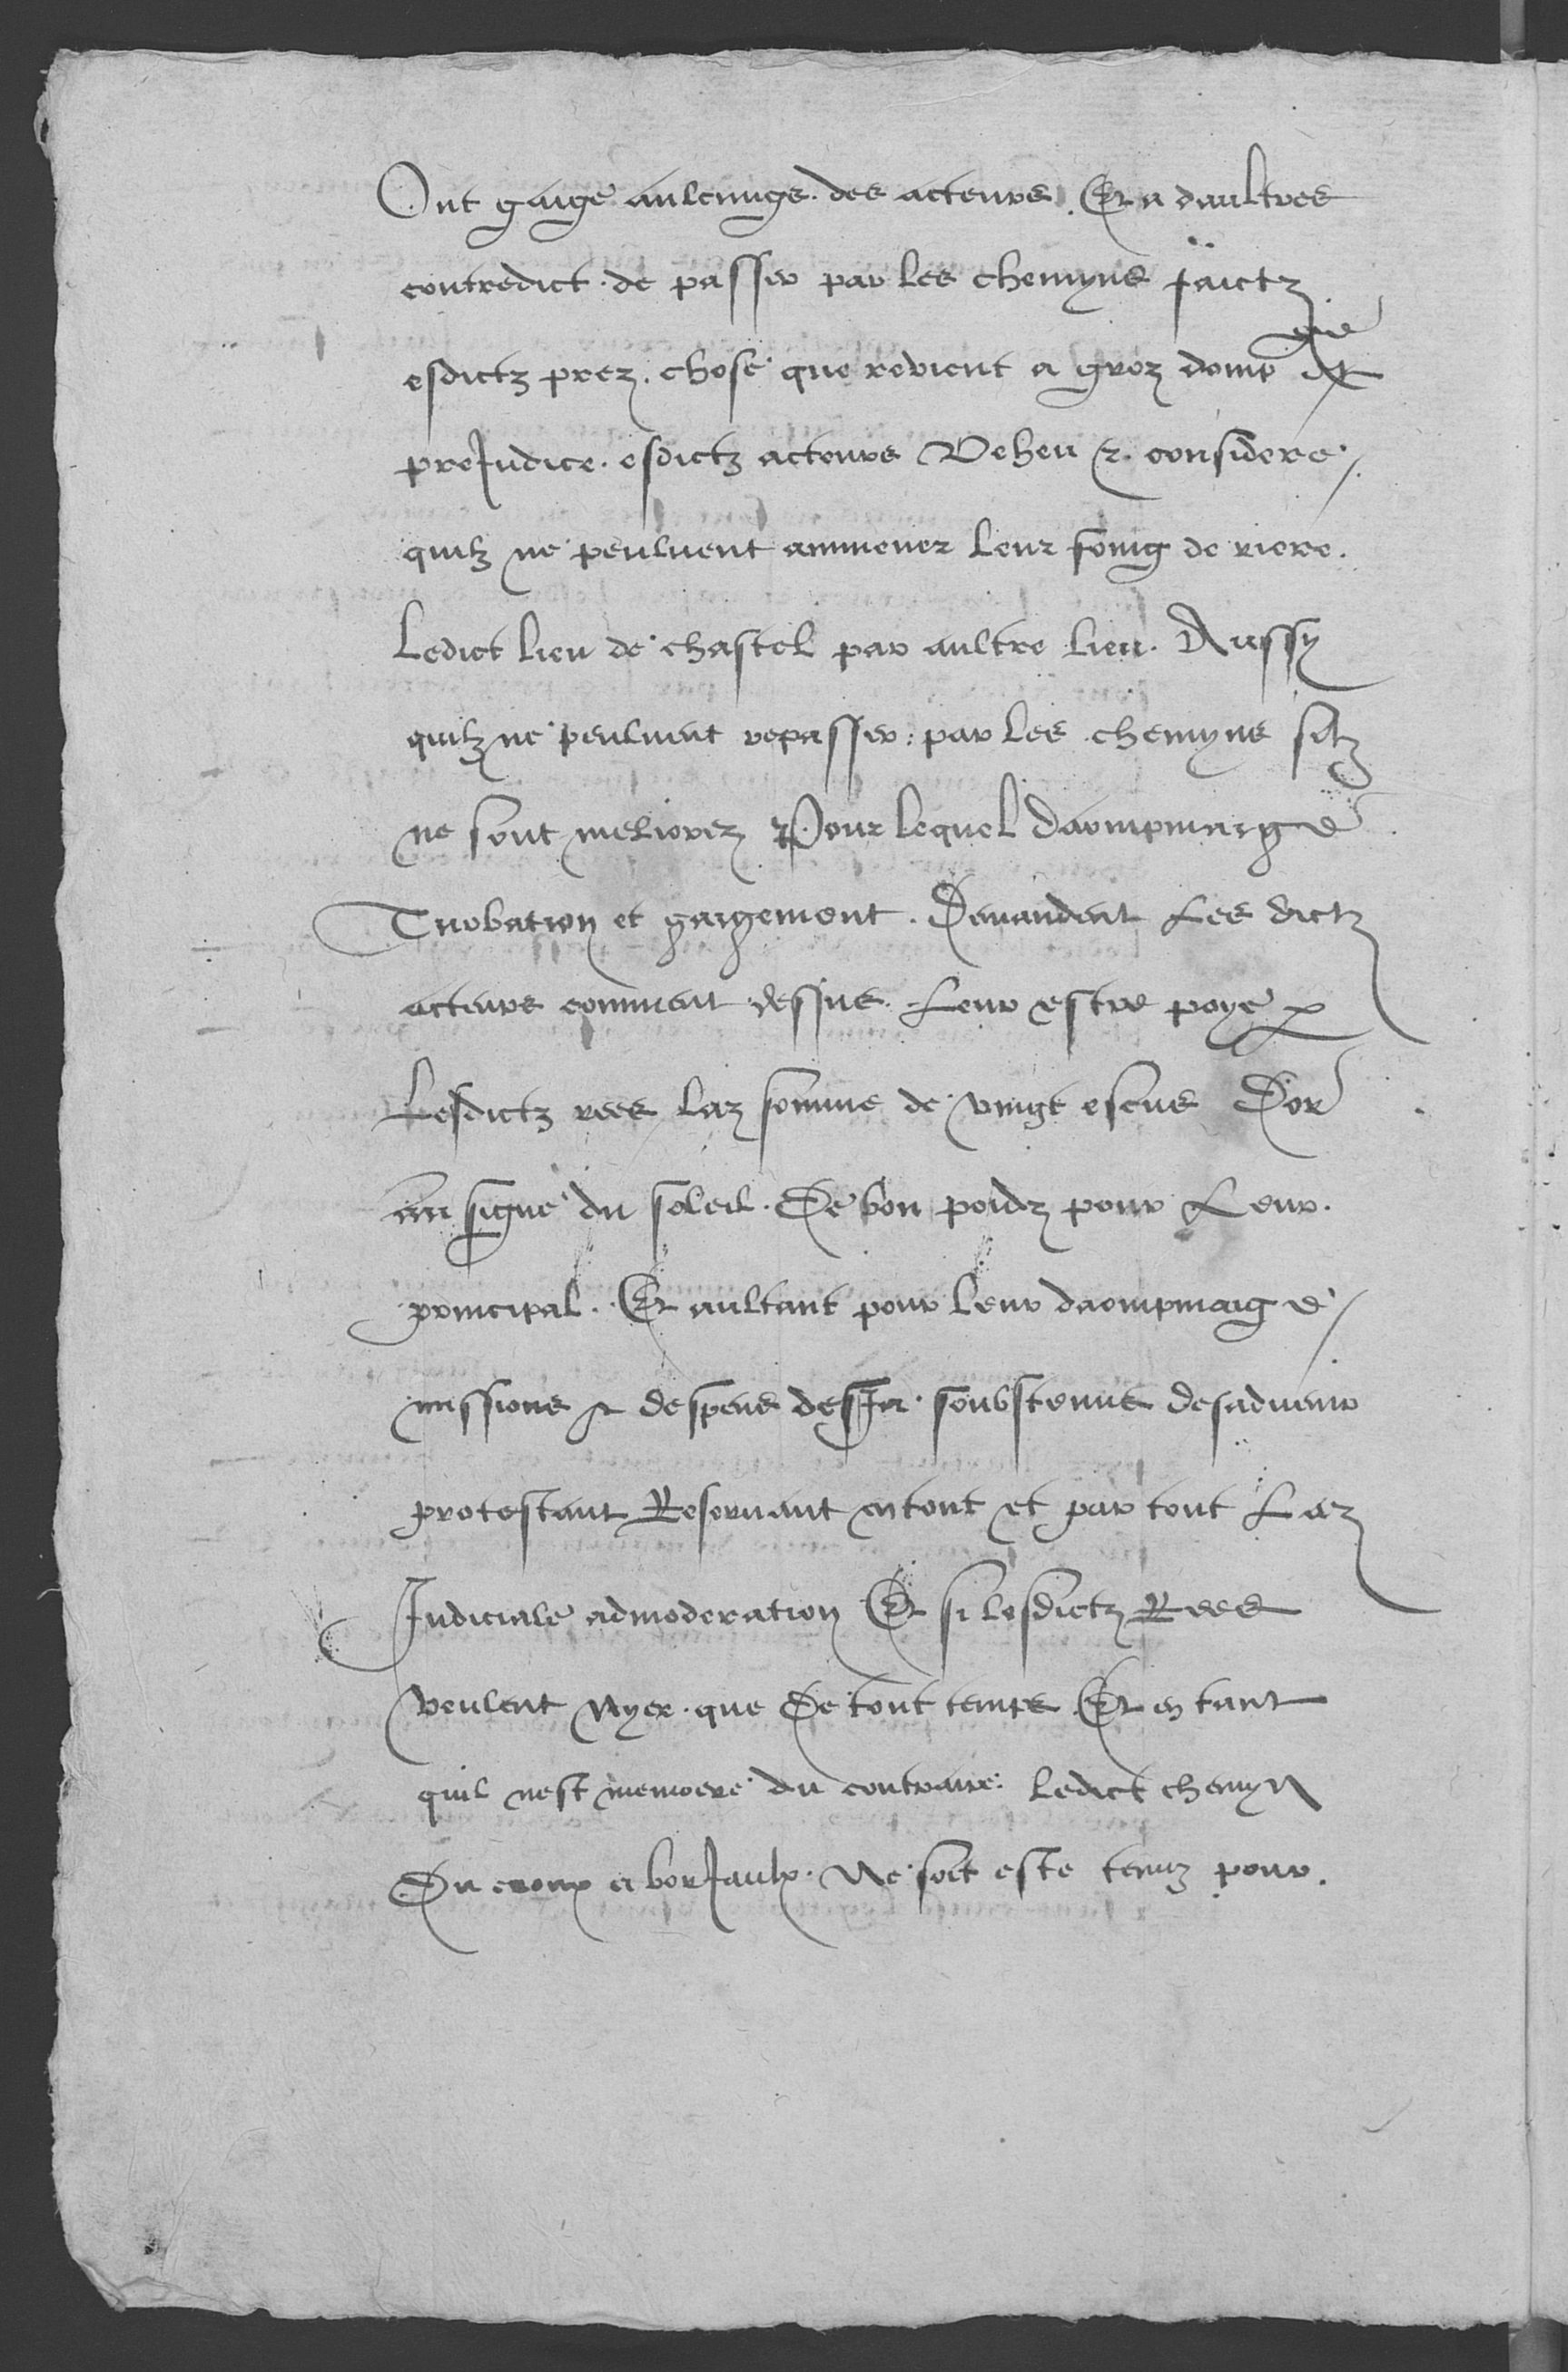 Ont gaige aulcungs des acteurs. Et a daultres
contredict. de passer par les chemyns faictz
esdictz prez. chose que revient a groz domp ge et
preJudice. esdictz acteurs Veheu z. considere
quilz ne peulvent ammener leur foing de riere.
Ledict lieu de chastel par aultre lieu. Aussy
quilz ne peulvent repasser: par les chemyns silz
ne sont meliorez Pour lequel daompmaige
Turbation et gaigement. Demandent Les dictz
acteurs comment dessus. Leur estre poye p
Lesdictz rees laz somme de vingt escus Dor
au signe du soleil. De bon poidz pour Leur.
principal. Et aultant pour leur daompmaige
missions et despens desJa soubstenus desadvenir
protestant Reservant en tout et par tout Laz
Judiciale admoderation Et si lesdictz Rees
veulent Nyer. que De tout temps Et en tant
quil nest memoere du contraire. ledict chemyn
Du croux a borJaulx. Ne soit este tenuz pour.